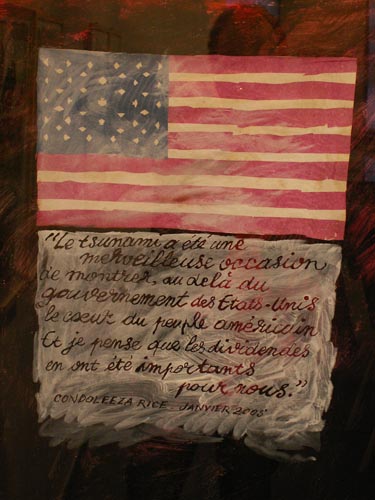 "Le tsunami a été une
merveilleuse occasion
de montrer, au delà du
gouvernement des Etats-Unis
le cœur du peuple américain
Et je pense que les dividendes
en ont été importants
pour nous."
CONDOLEEZA RICE - JANVIER 2005